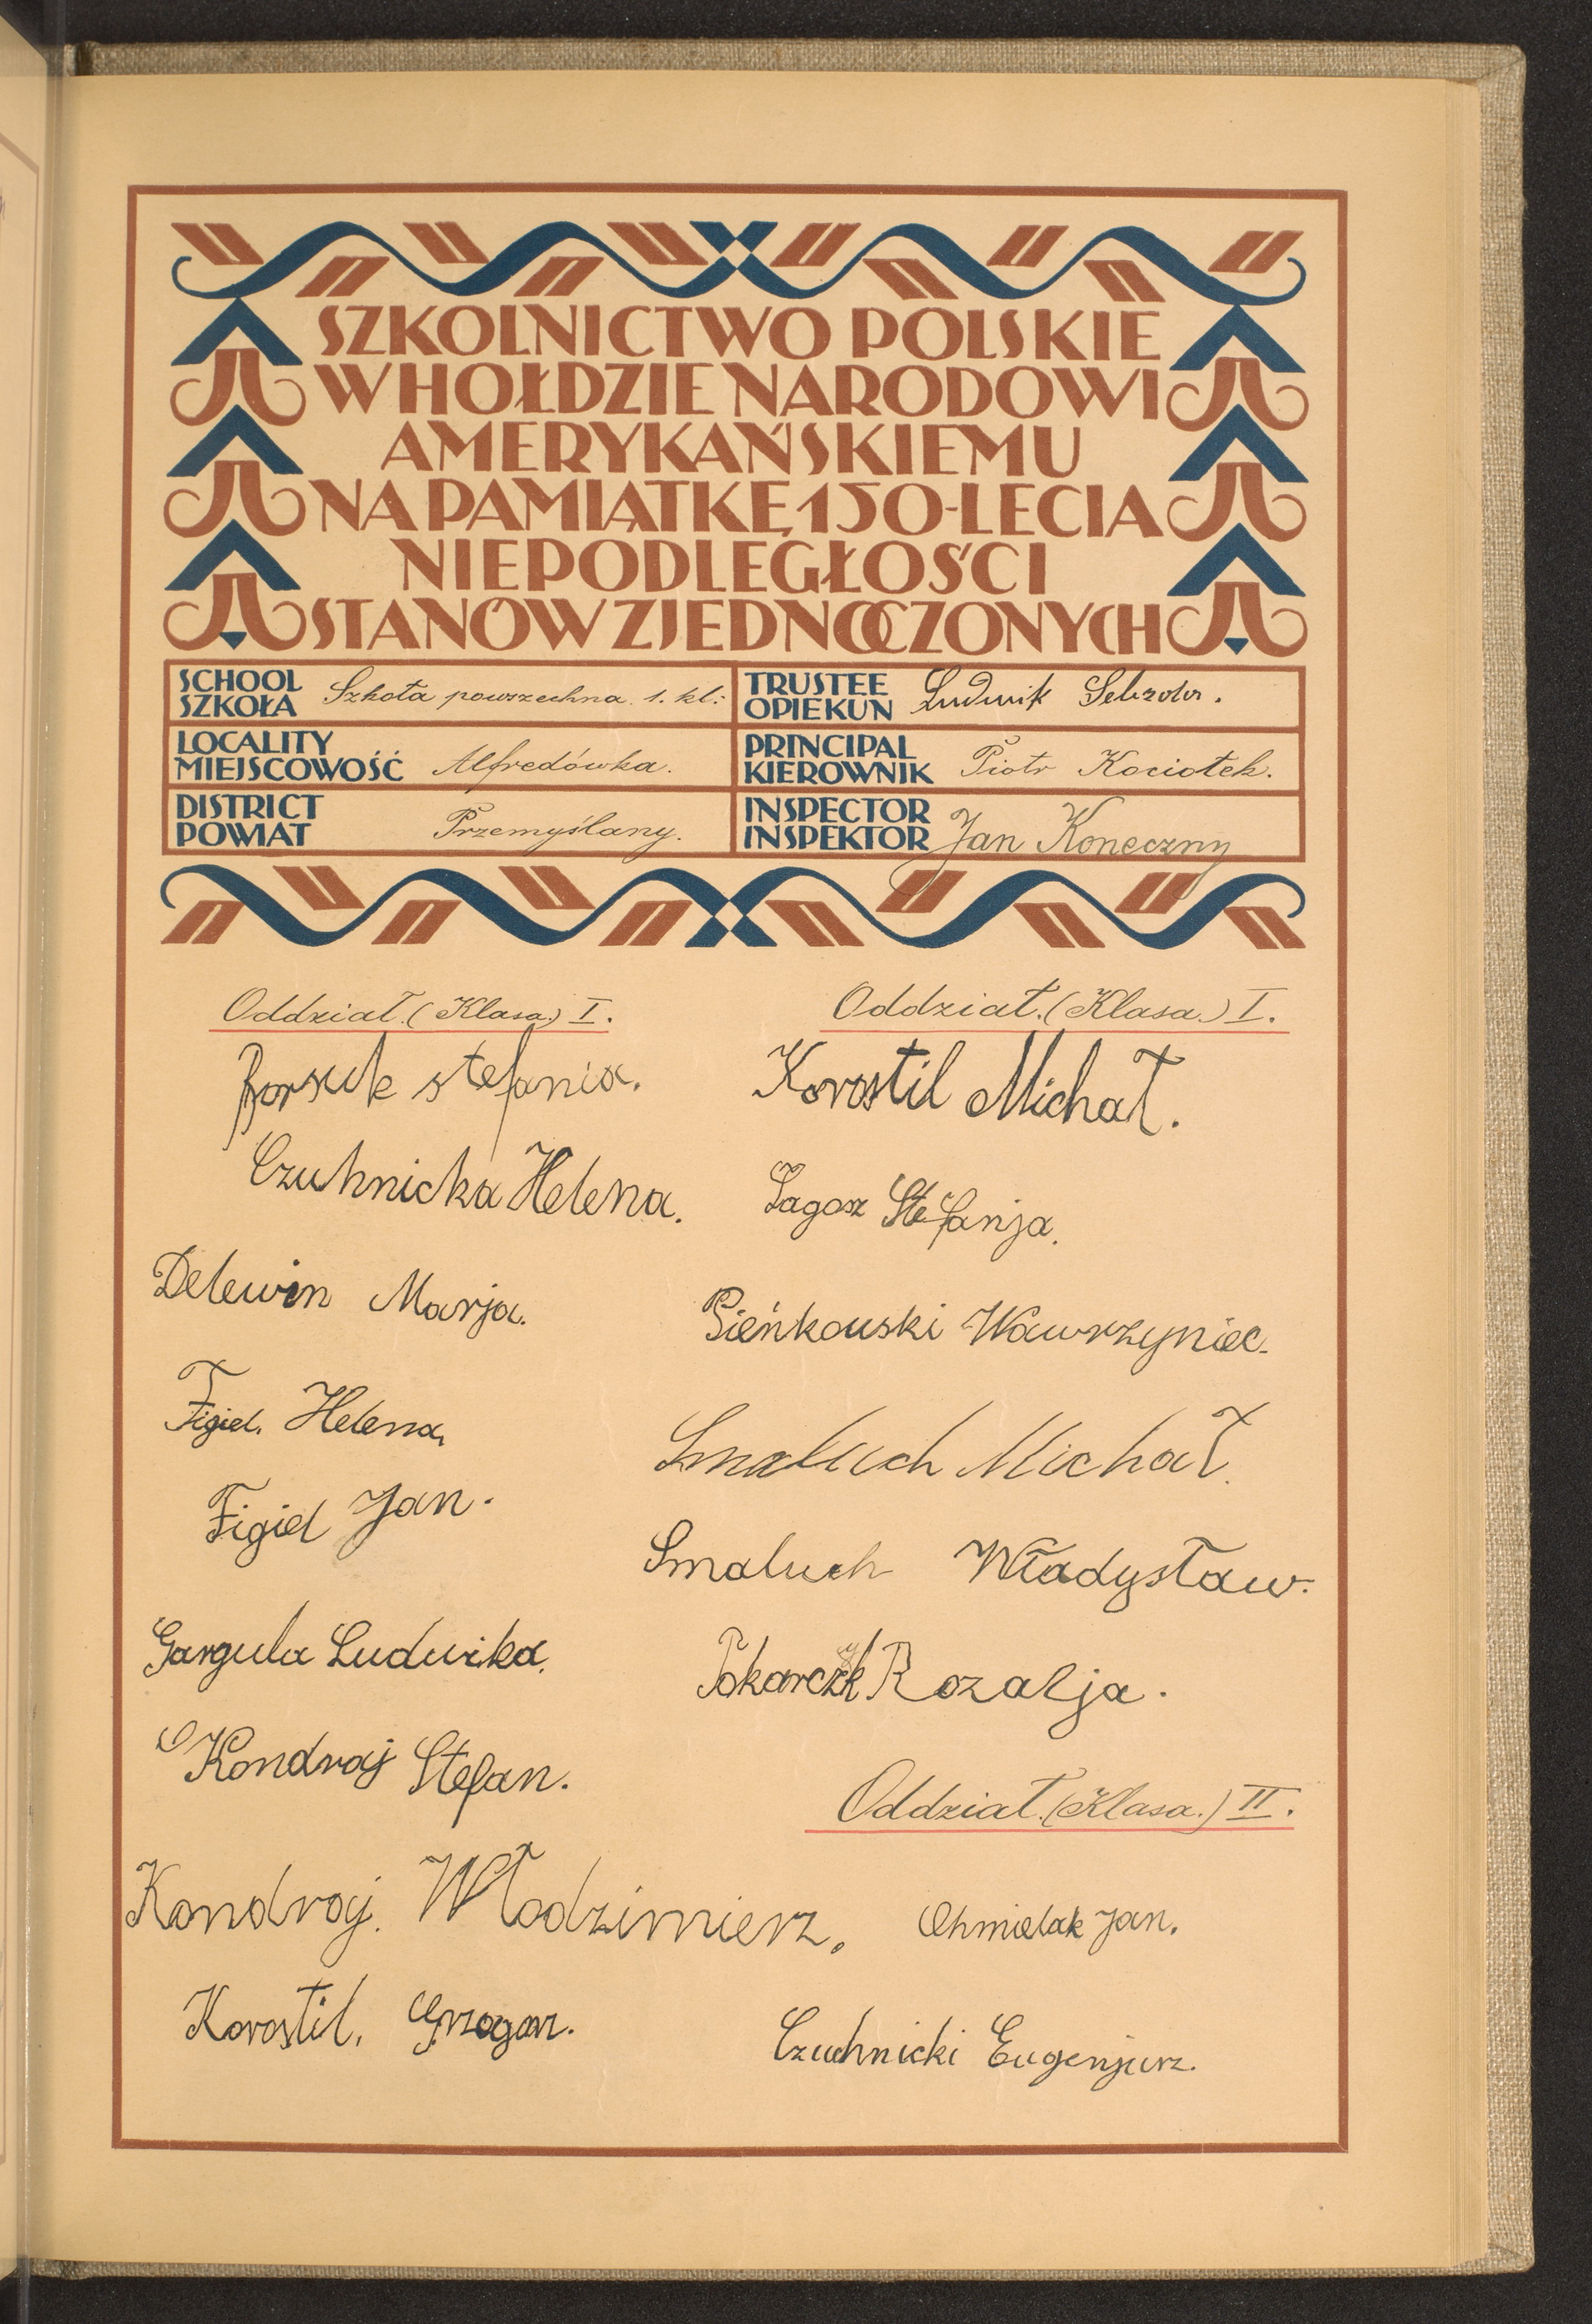 SZKOLNICTWO POLSKIE
W HOŁDZIE NARODOWI
AMERYKAŃSKIEMU
NA PAMIĄTKĘ 150-LECIA
NIEPODLEGŁOŚCI
STANÓW ZJEDNOCZONYCH
SCHOOL
SZKOŁA Szkoła powszechna 1. kl:
LOCALITY
MIEJSCOWOŚĆ Alfredówka.
DISTRICT
POWIAT Przemyślany.
TRUSTEE
OPIEKUN Ludwik
PRINCIPAL
KIEROWNIK Piotr Kociołek.
INSPECTOR
INSPEKTOR Jan Koneczny
Oddział. (Klasa.) I.
Borsuk stefania.
Czuhnicka Helena.
Delewin Marja.
Figiel. Helena.
Figiel Jan.
Gargula Ludwika.
Kondraj Stefan.
Kondraj. Włodzimierz.
Korostil. Grzegorz.
Oddział. (Klasa.) I.
Korostil Michał.
Łagosz Stefanja.
Pieńkowski Wawrzyniec.
Smaluch Michał.
Smaluch Władysław.
Tokarczyk Rozalja.
Oddział. (Klasa.) II.
Chmielak Jan.
Czuchnicki Eugenjusz.